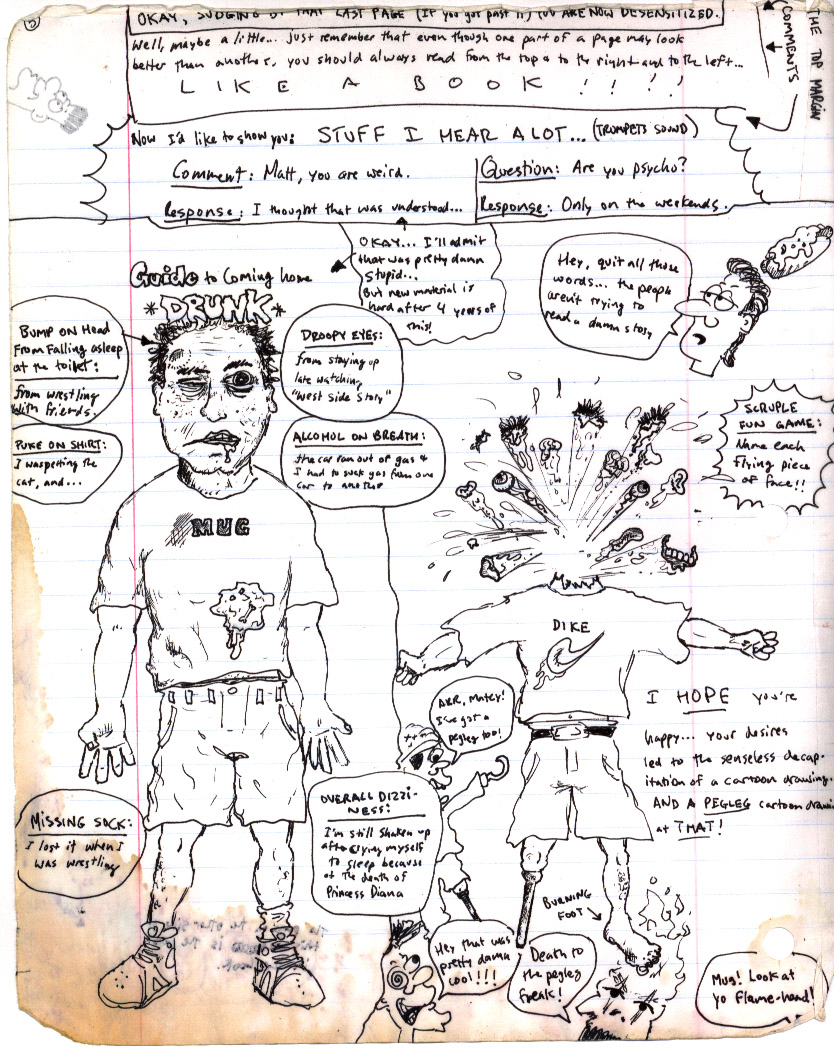 2
OKAY, JUDGING BY THAT LAST PAGE (If you got past it) YOU ARE NOW DESENSITIZED.
Well, maybe a little... just remember that even though one part of a page may look
better than another, you should always read from the top & to the right and to the left...
LIKE A BOOK !!!!
THE TOP MARGIN
COMMENTS
Now I'd like to show you: STUFF I HEAR A LOT... (TRUMPETS SOUND)
Comment: Matt, you are weird.
Response: I thought that was understood...
Question: Are you psycho?
Response: Only on the weekends.
OKAY... I'll admit
that was pretty damn
stupid...
But new material is
hard after 4 years of
this!
Guide to Coming home
*DRUNK*
Hey, quit all those
words... the people
aren't trying to
read a damn story
BUMP ON HEAD
From Falling asleep
at the toilet:
from wrestling
with friends.
DROOPY EYES:
from staying up
late watching
"West Side Story"
PUKE ON SHIRT:
I was petting the
cat, and...
ALCOHOL ON BREATH:
the car ran out of gas &
I had to suck gas from one
car to another
SCRUPLE
FUN GAME:
Name each
Flying piece
of face!!
MUG
DIKE
ARR, Matey!
I've got a
pegleg too!
I HOPE you're
happy... your desires
led to the senseless decap-
itation of a cartoon drawing.
AND A PEGLEG cartoon drawin
at THAT!
MISSING SOCK:
I lost it when I
was wrestling
OVERALL DIZZI-
NESS:
I'm still shaken up
after crying myself
to sleep because
of the death of
Princess Diana
BURNING
FOOT
Hey that was
pretty damn
cool!!!
Death to
the pegleg
freak!
Mug! Look at
yo flame-hand!